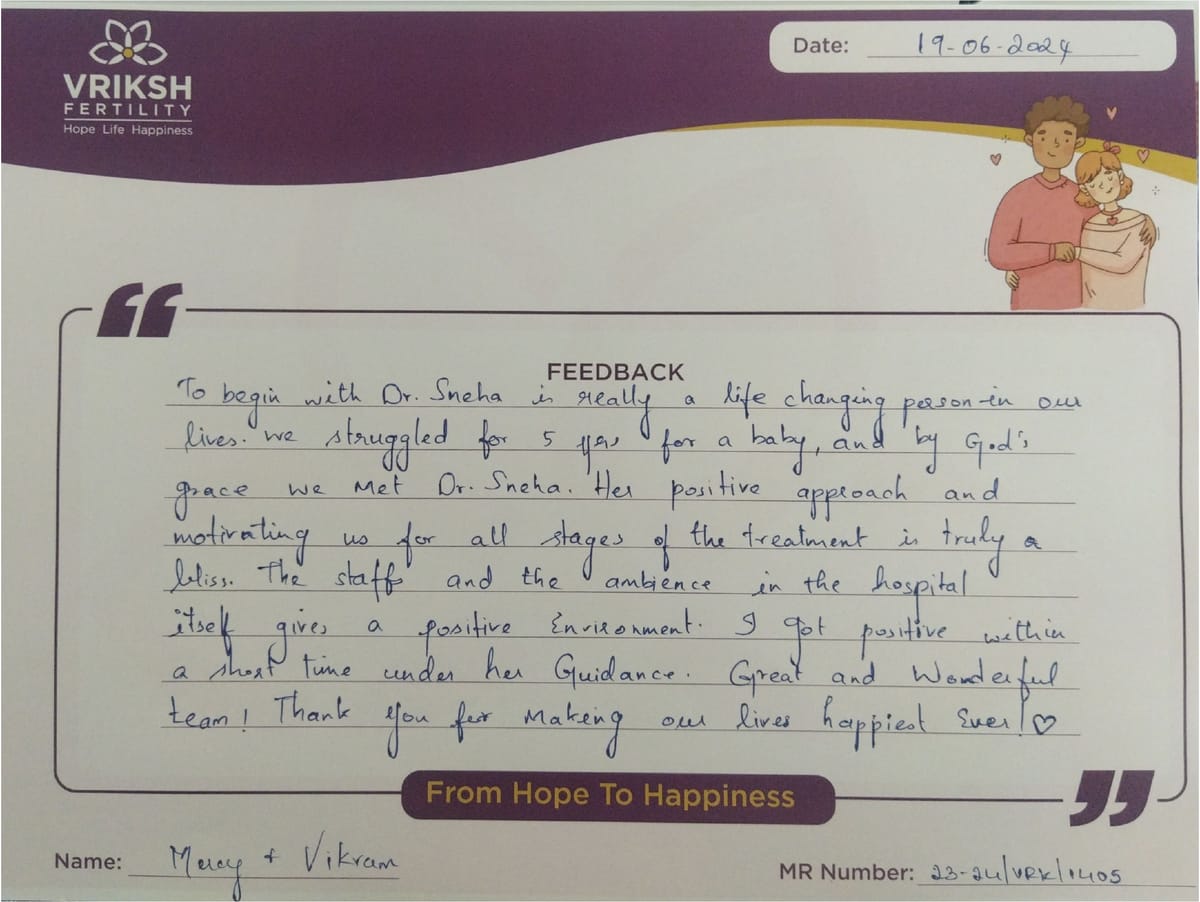 VRIKSH
FERTILITY
Hope Life Happiness
Date: 19-06-2024
FEEDBACK
To begin with Dr. Sneha is really a life changing person in our
lives. We struggled for 5 yrs for a baby, and by God's
grace we met Dr. Sneha. Her positive approach and
motivating us for all stages of the treatment is truly a
bliss. The staff and the ambience in the hospital
itself gives a positive Environment. I got positive within
a short time under her Guidance. Great and Wonderful
team! Thank you for Making our lives happiest Ever! ♡
From Hope To Happiness
Name: Mercy + Vikram
MR Number: 23-24/VRK/1405